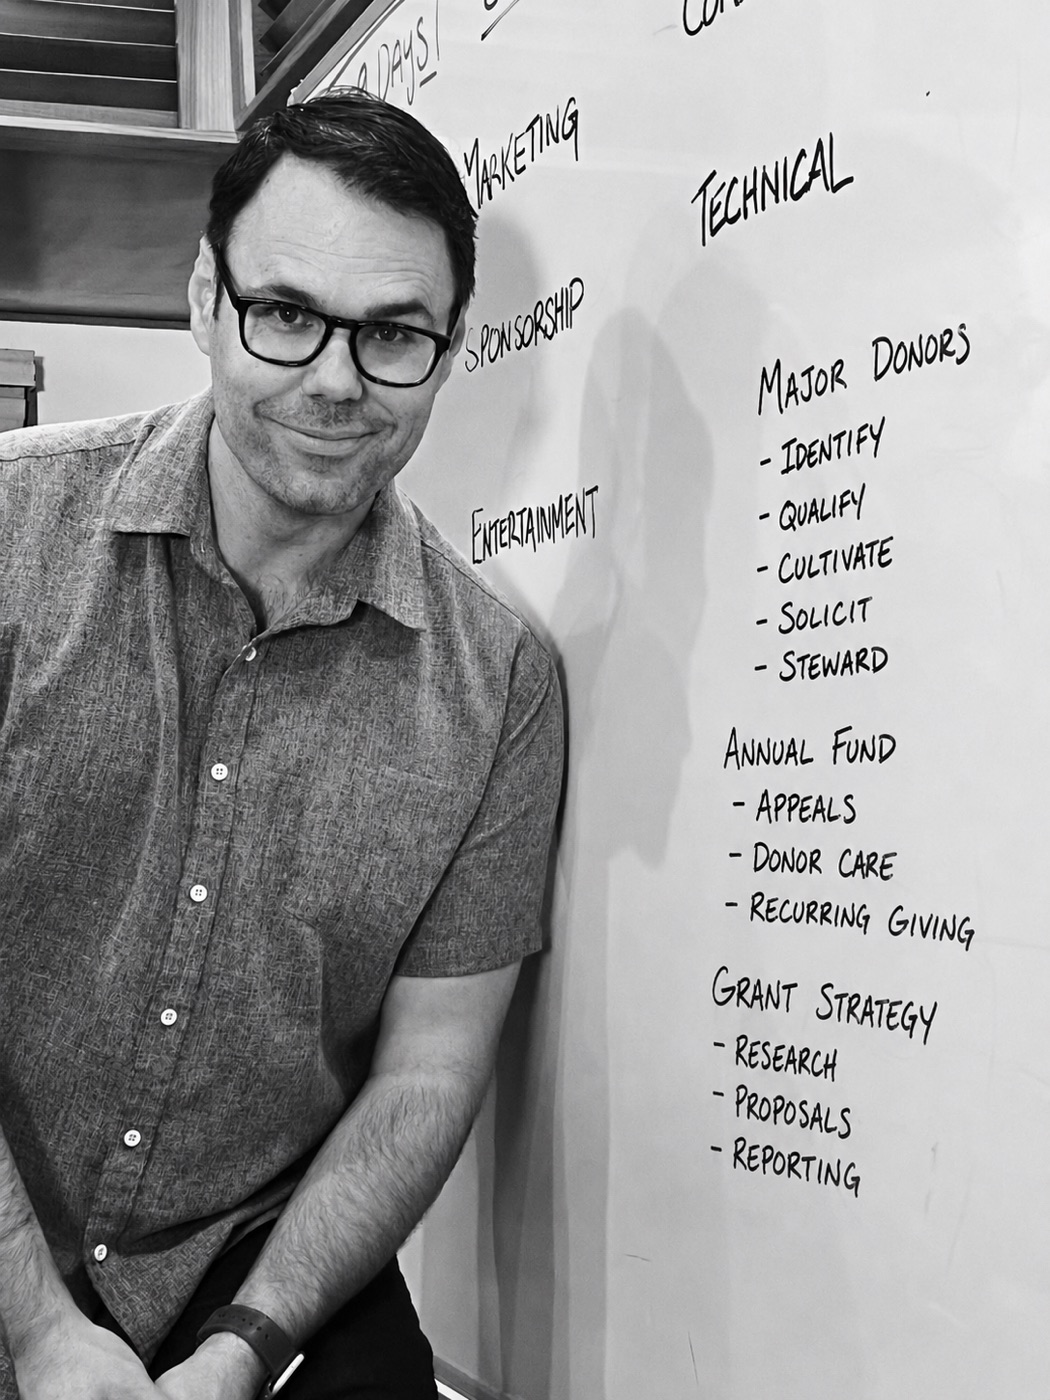 DAYS
MARKETING
TECHNICAL
SPONSORSHIP
ENTERTAINMENT
MAJOR DONORS
- IDENTIFY
- QUALIFY
- CULTIVATE
- SOLICIT
- STEWARD
ANNUAL FUND
- APPEALS
- DONOR CARE
- RECURRING GIVING
GRANT STRATEGY
- RESEARCH
- PROPOSALS
- REPORTING